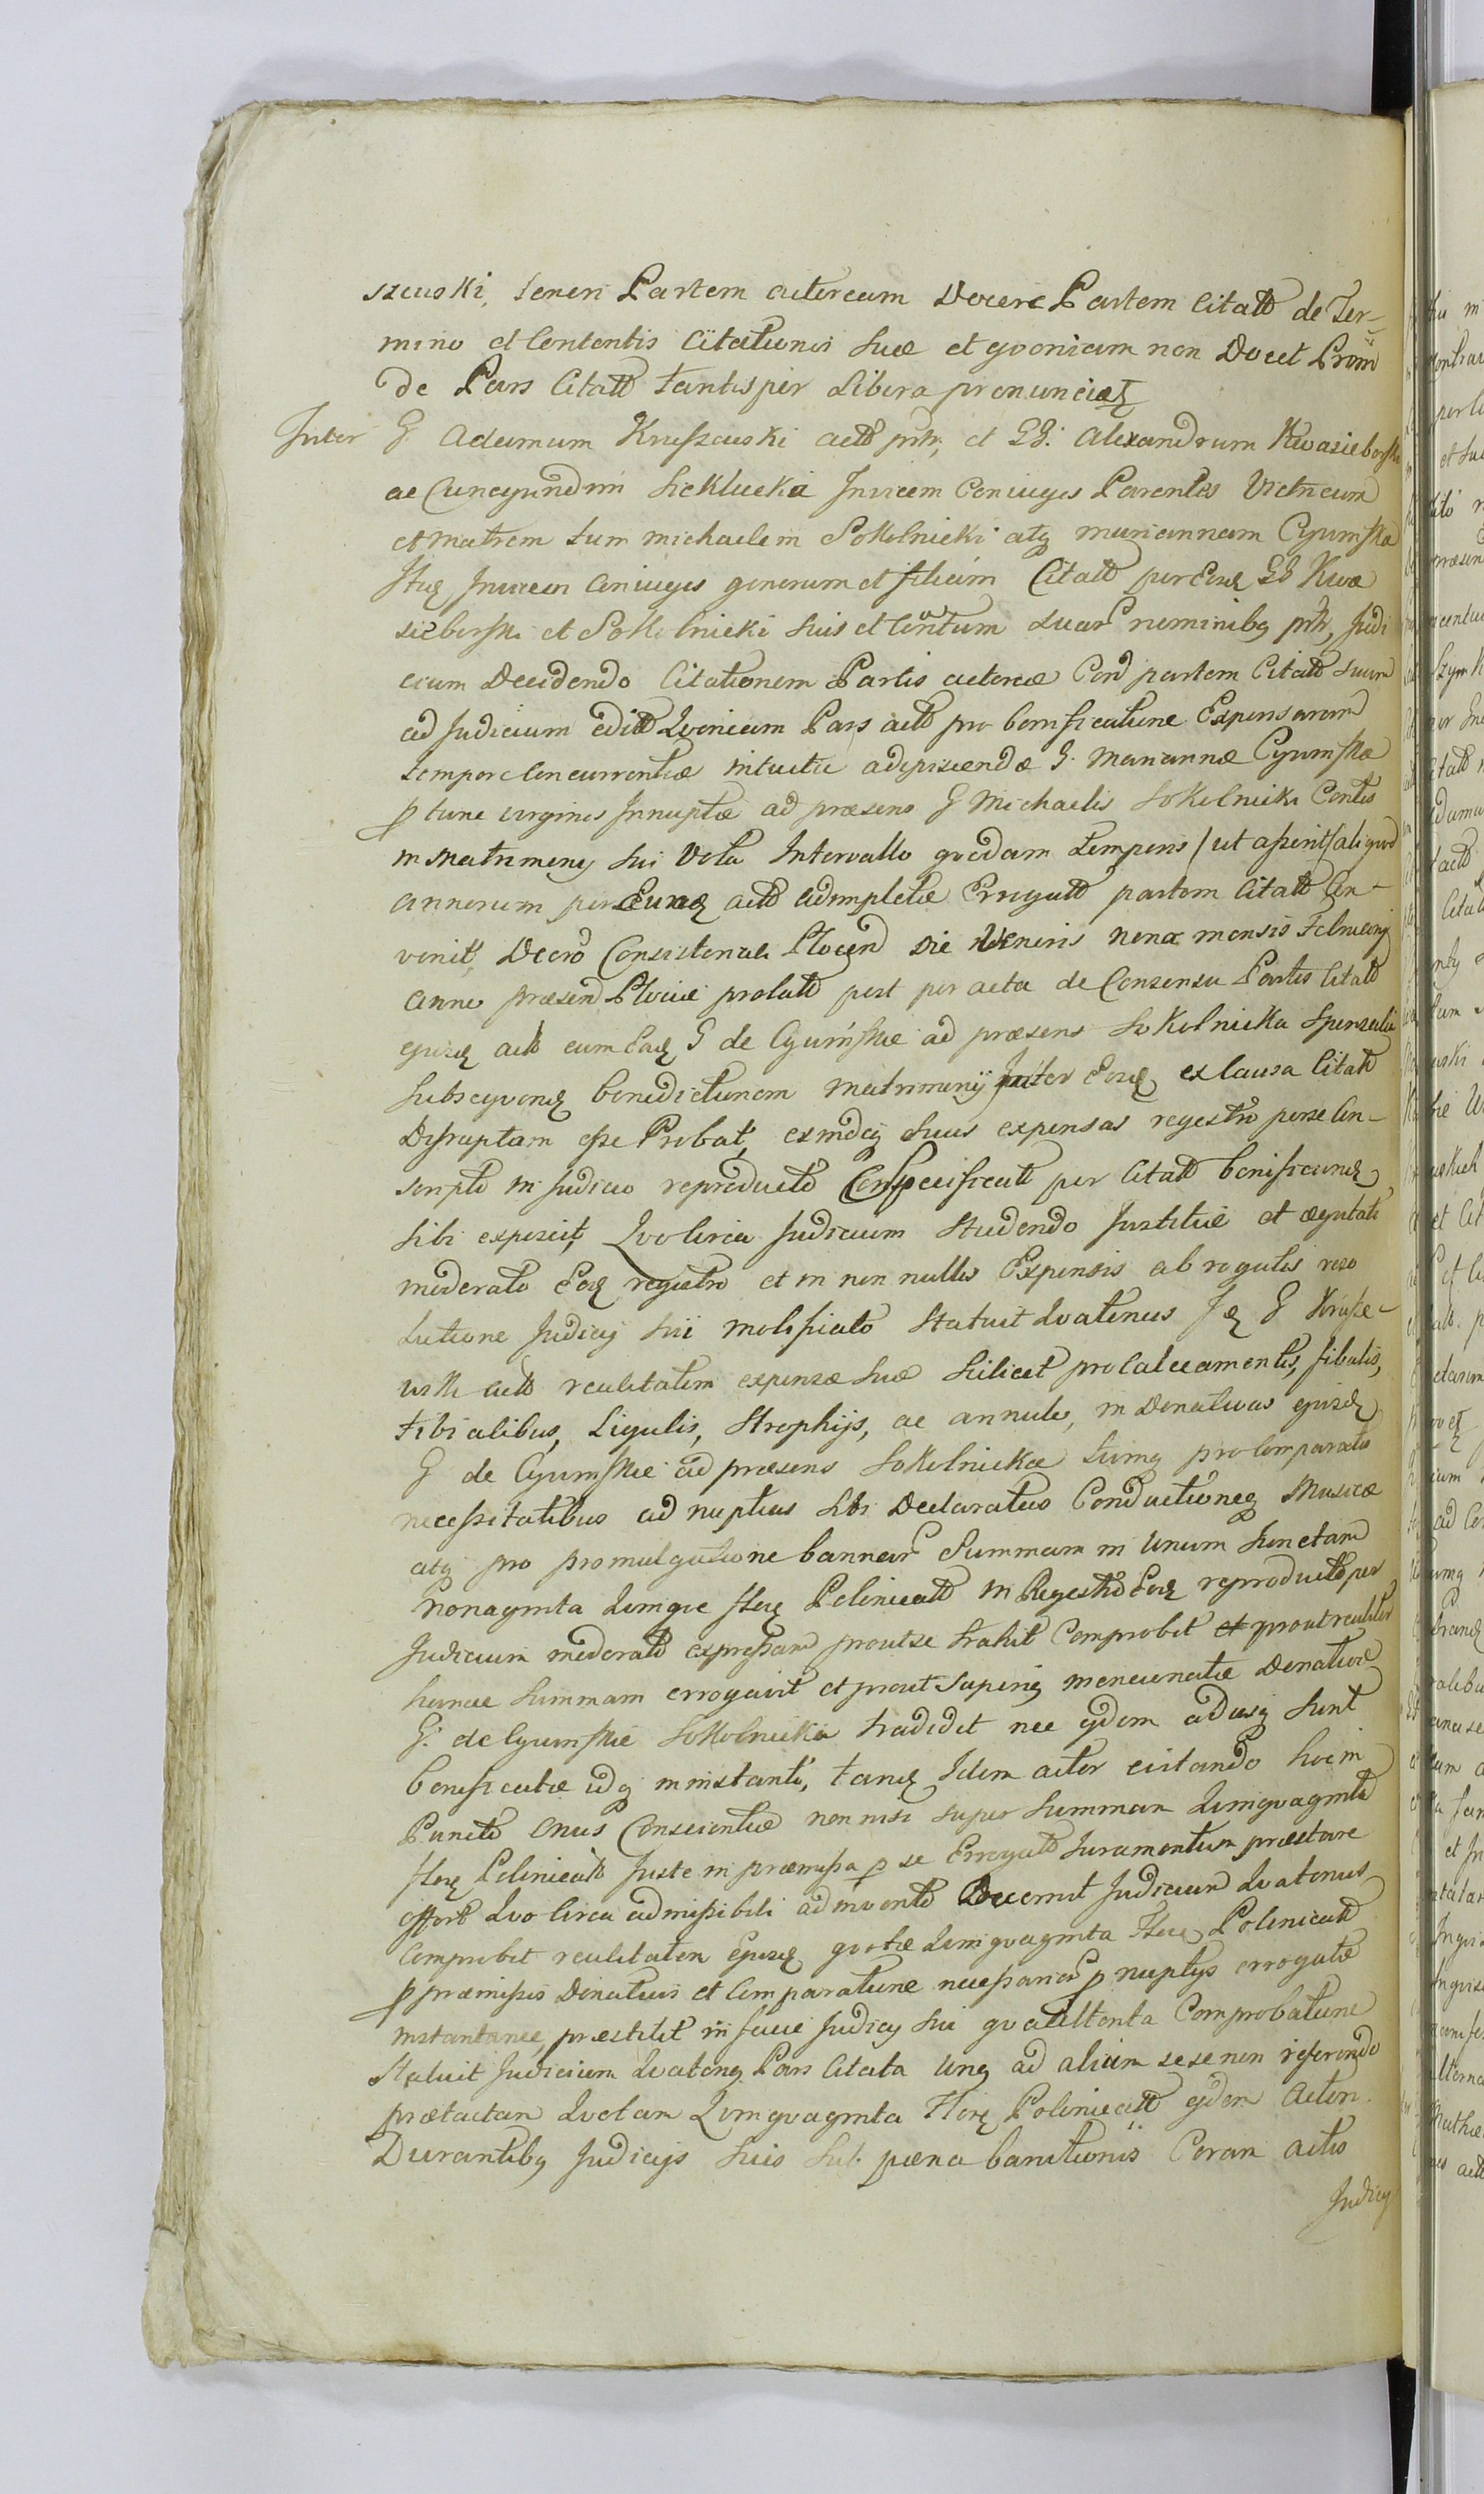 szewski, teneri Partem actoream Docere Partem Citatt de Ter-
mino et Contentis Citationis suae et qvoniam non Docet Proin
de Pars Citatt tantisper Libera pronunciatʒ
Inter G Adamum Kruszewski actt prtr, et GG. Alexandrum Kwasiebors
ac Cunegundim Siekłucka Invicem Coniuges Parentes Vitricum
et Matrem tum Michaelem Sokolnicki atq Mariannam Cyumska
Itidʒ Invicem Coniuges generum et filiam Citatt per Eosdʒ GG Kwa
sieborski et Sokolnicki suis et Contum suar nominibq prtr, Judi
cium Decidendo Citationem Partis actoreae Cord partem Citatt suum
ad Judicium editt Qvoniam Pars actt pro bonificatione Expensarum
tempore Concurrentiae intuitu adipiscendae G. Mariannae Cyumska
p tunc virginis Innuptae ad praesens G Michaelis Sokolnicki Contis
in Matrimonij sui Vota Intervallo qvodam temporis /ut asserit/ aliqvod
annorum per Eundʒ actt adimpletae Erogatt partem Citatt Con-
venit, Decro Consistoriali Plocen Die Veneris nona mensis Februarij
anno praesen Plociae prolatt post per acta de Consensu Partis Citatt
ejusdʒ actt cum Eadʒ G de Cyumskie ad praesens Sokolnicka Sponsalia
Subseqvendʒ benedictionem matrimonij Inter Eosdʒ ex Causa Citatt
Disruptam esse Probat, exindeq suas expensas regestro per se Con-
scripto in Judicio reproducto Conspecificatt per Citatt bonificandʒ
sibi exposcit, Qvo Circa Judicium Studendo Justitiae et aeqvitati
moderato Eodʒ regestro et in non nullis Expensis abrogatis reso
lutione Judicij sui molificato Statuit Qvatenus Idʒ G Krusze-
wski actt realitatem expensae suae scilicet pro Calceamentis, fibulis,
tibialibus, Ligulis, Strophijs, ac annulo, in Donativas ejusdʒ
G de Cyumskie ad praesens Sokolnicka tumq pro Comparatis
necessitatibus ad nuptias sibi Declaratas Conductioneq Musicae
atq pro promulgatione bannor Summam in Unum Junctam
Nonaginta qvinqve flor Polonicatt in Regestro Eodʒ reproductt per
Judicium moderatt expressam prout se trahit Comprobet et prout realiter
hancce summam errogavit et prout superiq mencionatae Donativae
G. de Cyumskie Sokolnicka tradidit nec eidem adusq sunt
bonificatae idq in instanti, tandʒ Idem actor evitando hoc in
Puncto onus Conscientiae non nisi super Summam Qvinqvaginta
flor Polonicatt Juste in praemissa p se Errogatt Juramentum praestare
offert Qvo Circa admissibili ad invento Decernit Judicium Qvatenus
Comprobet realitatem Ejusdʒ qvotae Qvinqvaginta Flor Polonicatt
p praemissis Donativis et Comparatione necessarior p nuptijs errogatae
instantanee, praestitit in facie Judicij sui qva attenta Comprobatione
Statuit Judicium Qvatenq Pars Citata Unq ad alium sese non referendo
praetactam Qvotam Qvinqvaginta Flor Polonicatt eidem Actori
Durantibq Judicijs suis sub paena banitionis Coram actis
Judicij